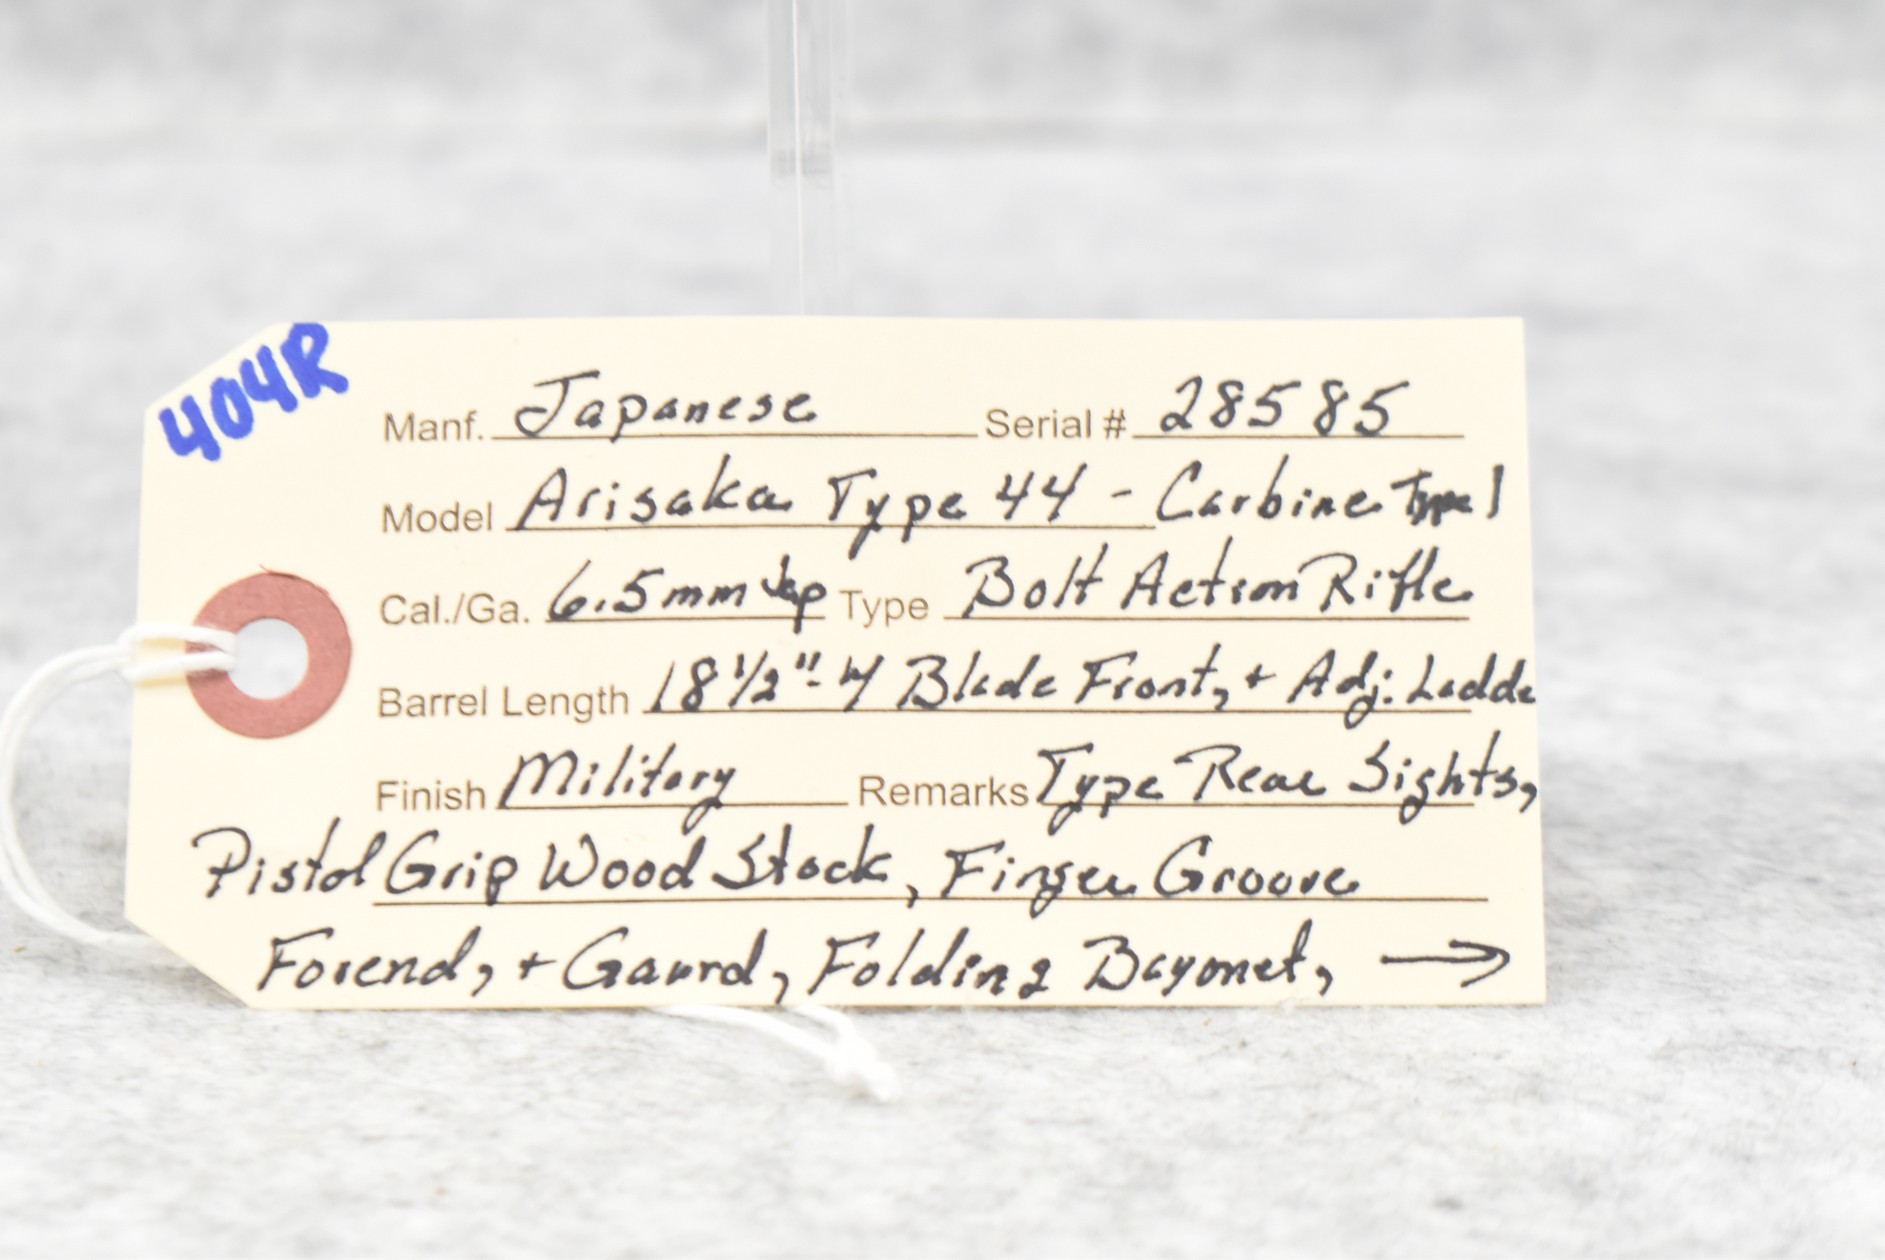 404R
Manf. Japanese Serial # 28585
Model Arisaka Type 44 - Carbine Type 1
Cal./Ga. 6.5mm Jap Type Bolt Action Rifle
Barrel Length 18 1/2" - w/ Blade Front, + Adj. Ladde
Finish Military Remarks Type Rear Sights,
Pistol Grip Wood Stock, Finger Groove
Forend, + Gaurd, Folding Bayonet, →